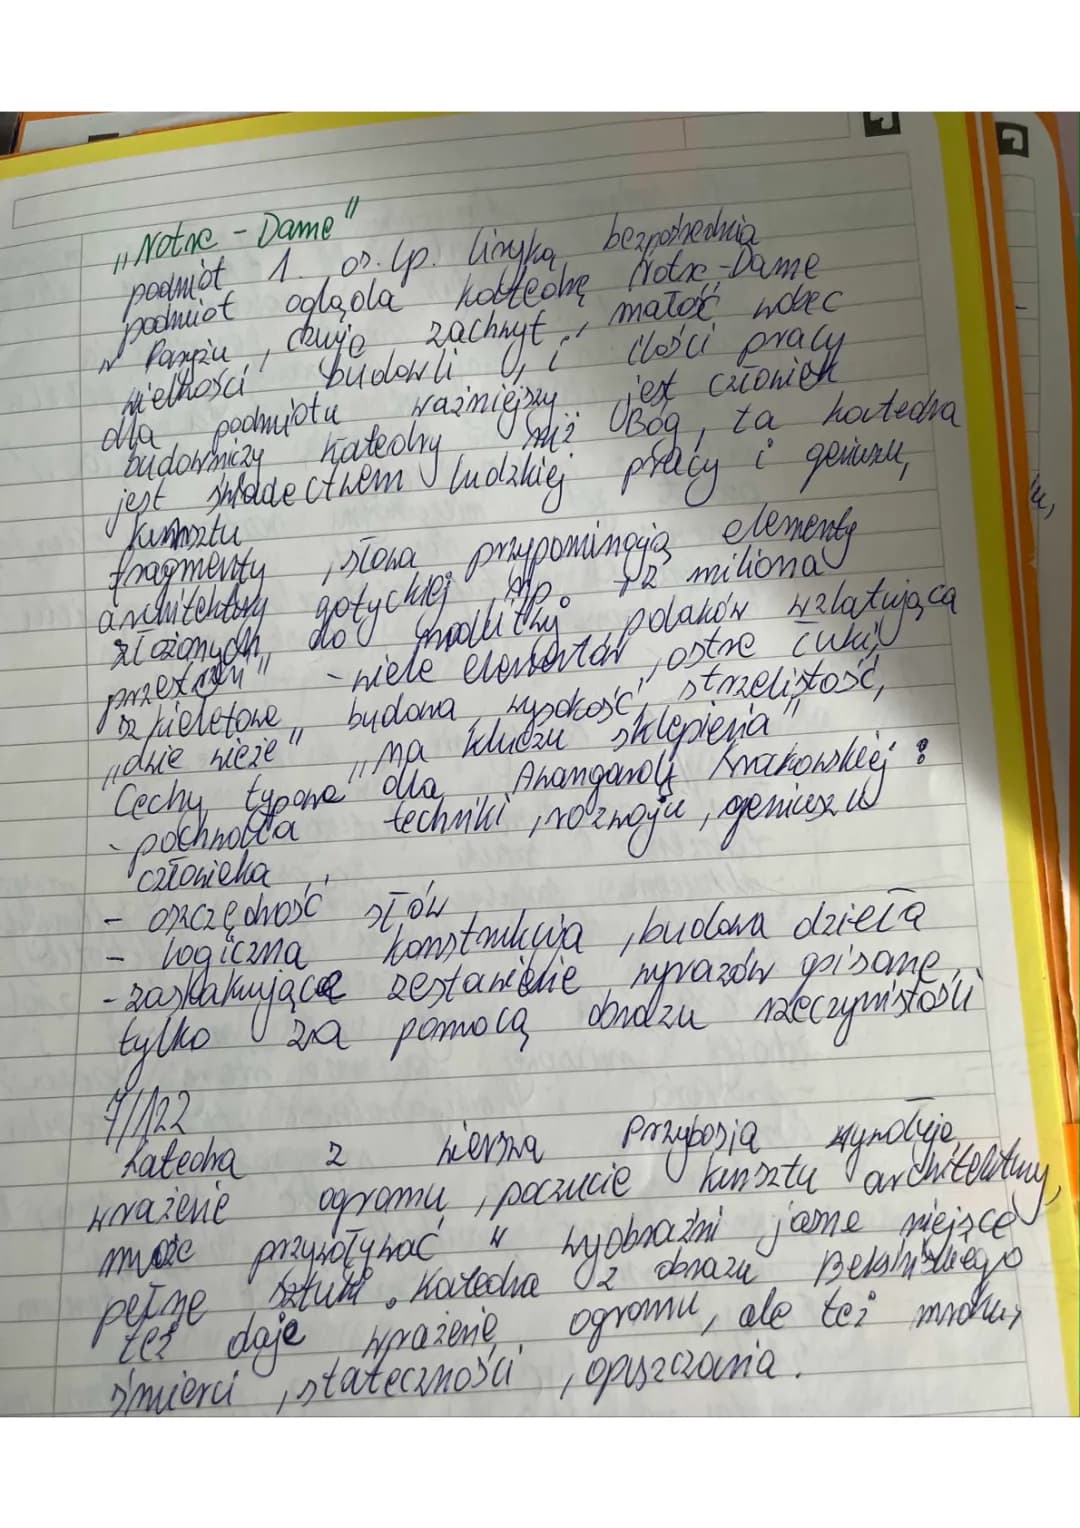 „Notre-Dame"
podmiot 1. os. lp. liryka bezpośrednia
podmiot ogląda katedrę Notre-Dame
w Paryżu, czuje zachwyt, małość wobec
wielkości budowli, i ilości pracy
dla podmiotu ważniejszy jest człowiek
budowniczy katedry niż Bóg, ta katedra
jest świadectwem ludzkiej pracy i geniuszu,
kunsztu
fragmenty, słowa przypominają elementy
architektury gotyckiej, np. „z miliona
złożonych do modlitwy polaków wzlatująca
przestrzeń" - wiele elementów, ostre łuki,
szkieletowa budowa wysokość, strzelistość,
„dwie wieże" „na kluczu sklepienia"
Cechy typowe dla Awangardy Krakowskiej:
- pochwała techniki, rozwoju, geniuszu
człowieka
- oszczędność słów
- logiczna konstrukcja, budowa dzieła
- zaskakujące zestawienie wyrazów opisane
tylko za pomocą obrazu rzeczywistości
7/122
Katedra z wiersza Przybosia wywołuje
wrażenie ogromu, poczucie kunsztu architektury,
może przywoływać w wyobraźni jasne miejsce
pełne sztuki. Katedra z obrazu Beksińskiego
też daje wrażenie ogromu, ale też mroku,
śmierci, stateczności, opuszczania.